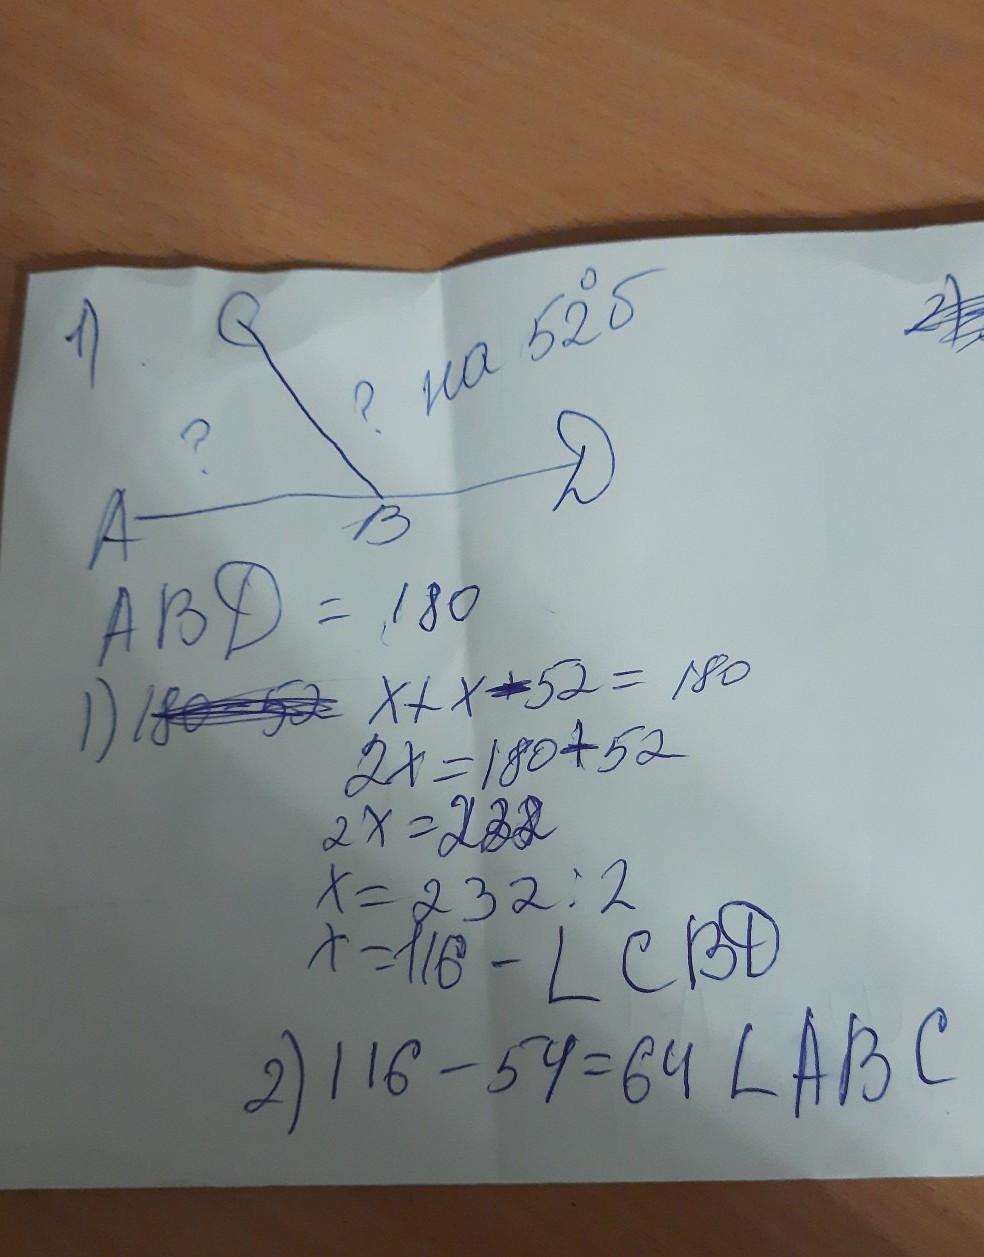 1)
C
? на 52° б
?
A B D
ABD = 180
1) x+x-52=180
2x=180+52
2x=232
x=232:2
x=116 - ∠CBD
2) 116-54=64 ∠ABC
2)